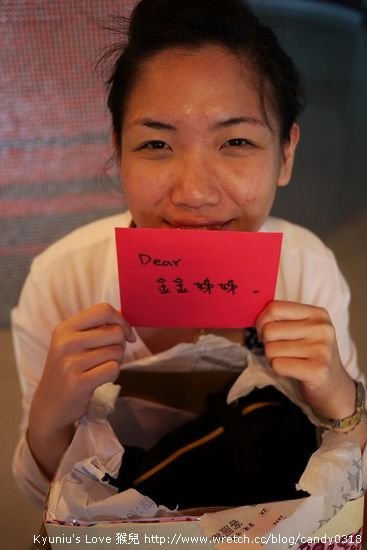 Dear
金金 姊姊.
Kyuniu's Love 猴兒 http://www.wretch.cc/blog/candy0318